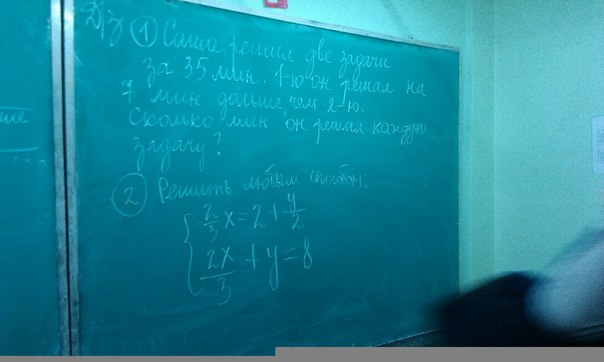 Д/з ① Саша решил две задачи
за 35 мин. 1-ю он решал на
7 мин дольше чем 2-ю.
Сколько мин он решал каждую
задачу?
② Решить любым способом:
2/3 x = 2 + y/2
2x/3 + y = 8